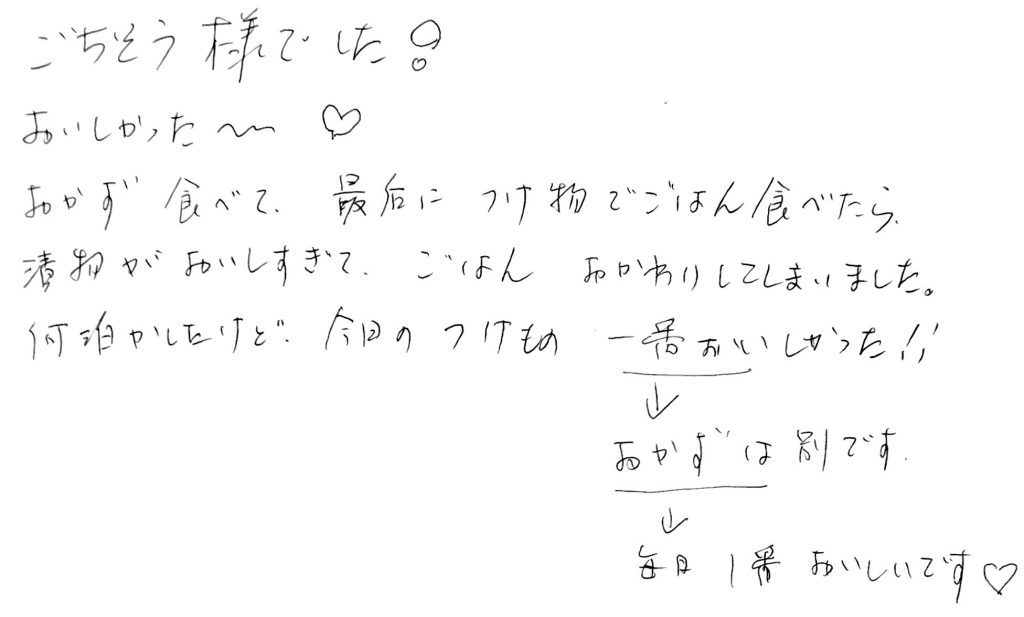 ごちそう様でした!
おいしかった〜 ♡
おかず食べて、最后につけ物でごはん食べたら、
漬物がおいしすぎて、ごはん おかわりしてしまいました。
何泊かしたけど、今日の つけもの 一番おいしかった!!
↓
おかずは別です。
↓
毎日 1番 おいしいです♡